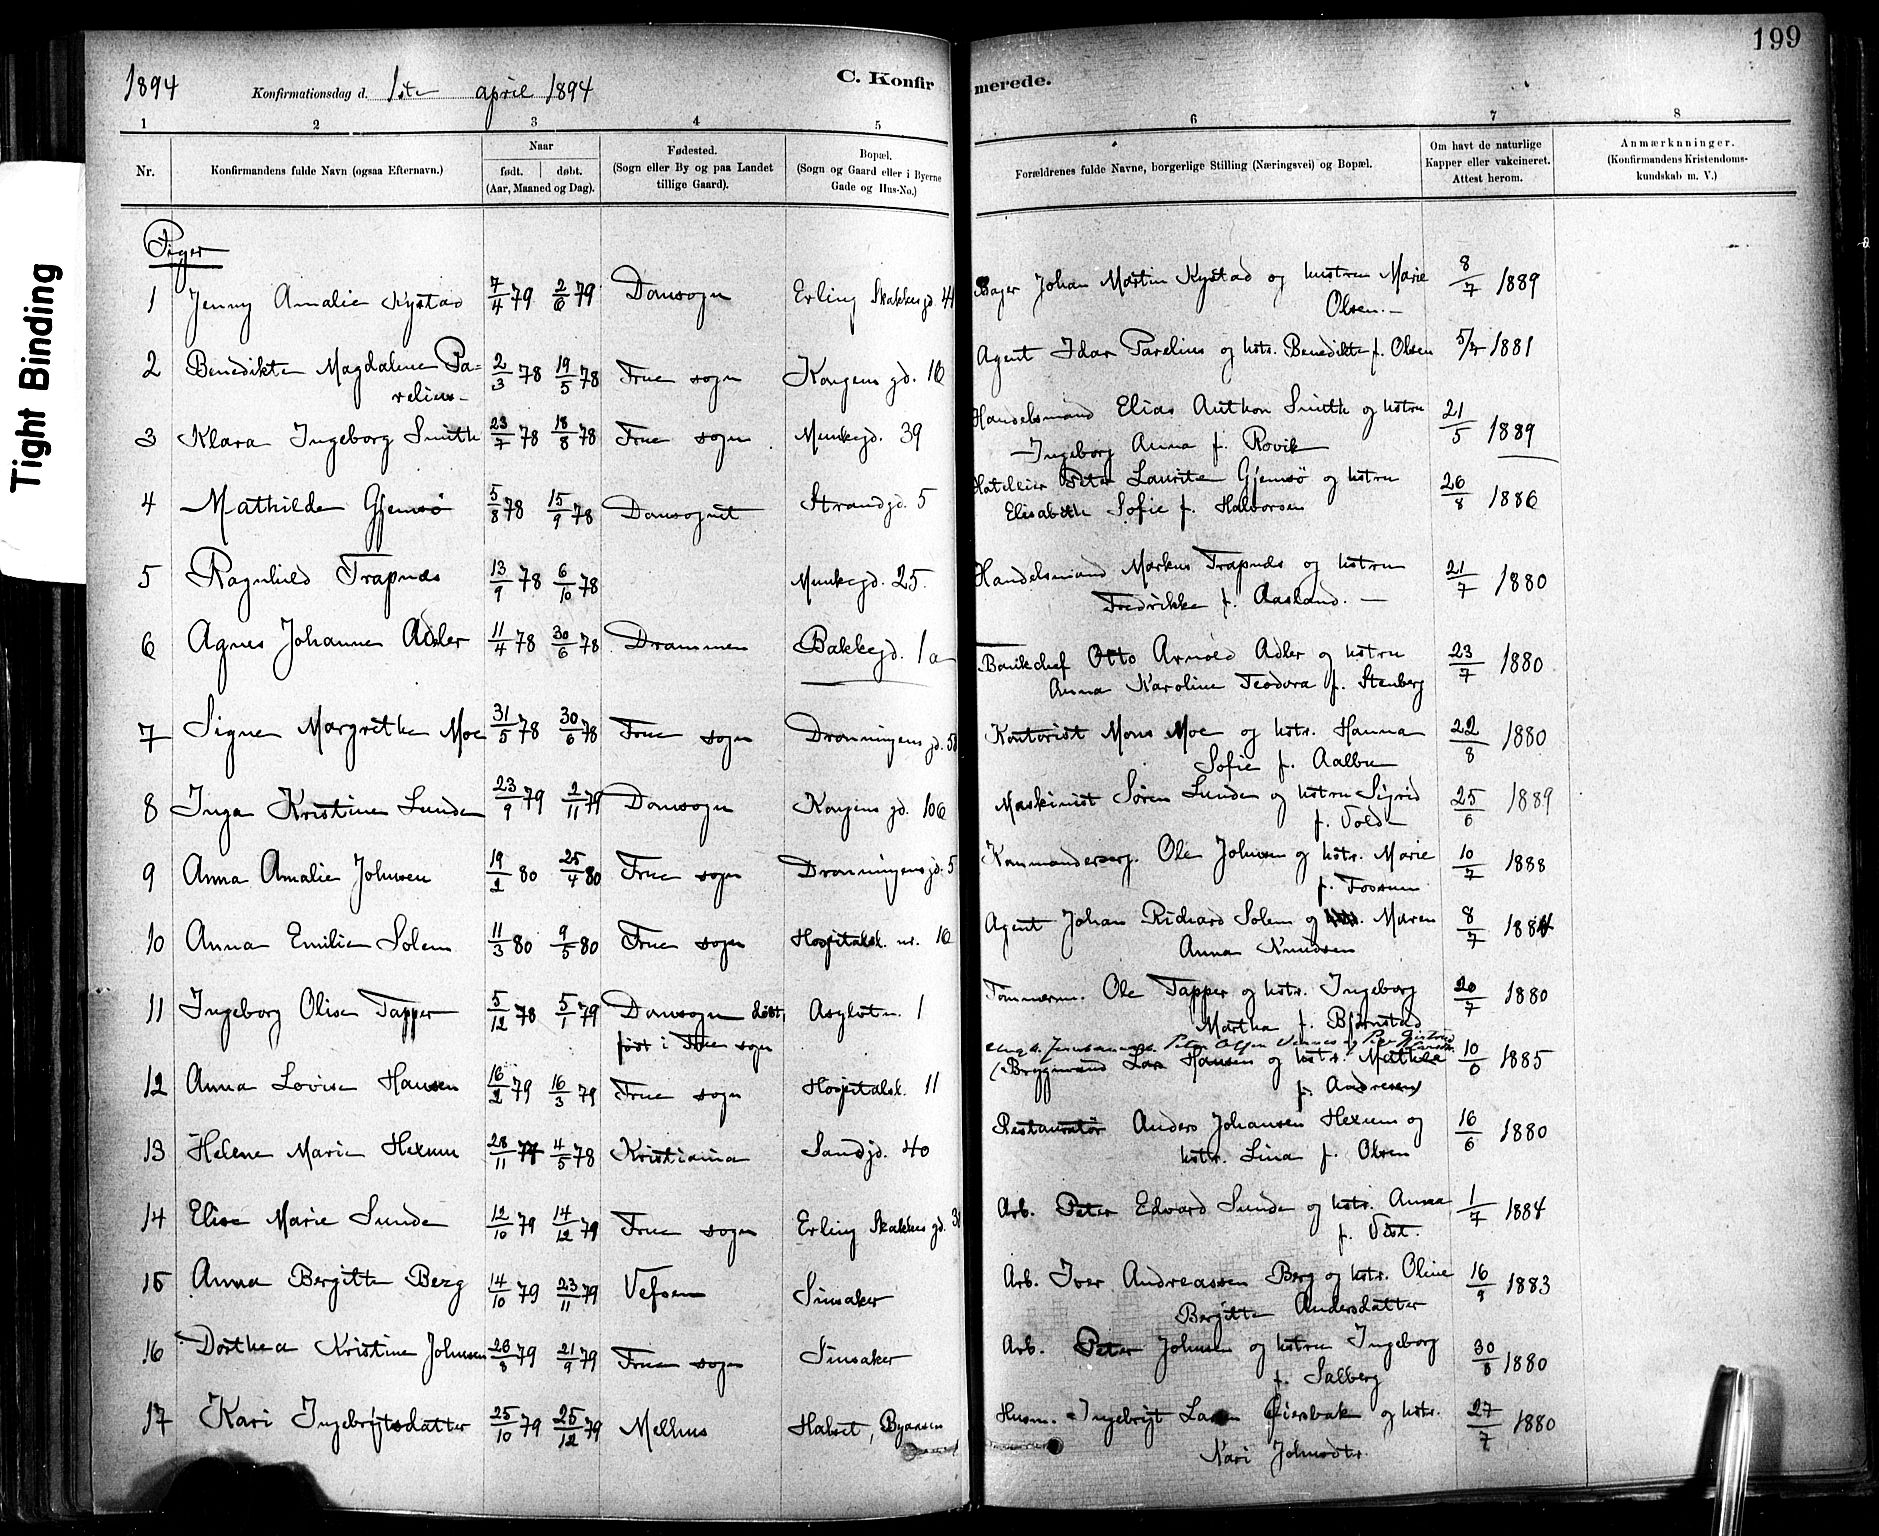 199
1894 Konfirmationsdag d. 1ste april 1894 C. Konfirmerede.
1 2 3 4 5 6 7 8
Nr. Konfirmandens fulde Navn (ogsaa Efternavn). Naar født. døbt. (Aar, Maaned og Dag). Fødested. (Sogn eller By og paa Landet tillige Gaard). Bopæl. (Sogn og Gaard eller i Byerne Gade og Hus-No.) Forældrenes fulde Navne, borgerlige Stilling (Næringsvei) og Bopæl. Om havt de naturlige Kapper eller vakcineret. Attest herom. Anmærkninger. (Konfirmandens Kristendomskundskab m. V.)
Piger
1 Jenny Amalie Kystad 7/4 79 2/6 79 Domsogn Erling Skakkes gd. 41 Bager Johan Martin Kystad og hustru Marie 8/7 1889
Olsen.-
2 Benedikte Magdalene Pa= 2/3 78 19/5 78 Frue sogn Kongens gd. 16 Agent Idar Parelius og hstr. Benedikte f. Olsen 5/7 1881
relius-
3 Klara Ingeborg Smith 23/7 78 18/8 78 Frue sogn Munkegd. 39 Handelsmand Elias Anthon Smith og hstru 21/5 1889
Ingeborg Anna f. Rovik
4 Mathilde Gjemsø 5/8 78 15/9 78 Domsognet Strandgd. 5 Hotellier Peter Laurits Gjemsø og hstru 26/8 1886
Elisabeth Sofie f. Halvorsen
5 Ragnhild Trapnæs 13/9 78 6/10 78 Munkegd. 25. Handelsmand Markus Trapnæs og hstru 21/7 1880
Fredrikke f. Aasland. -
6 Agnes Johanne Adler 11/4 78 30/6 78 Drammen Bakkegd. 1a Bankchef Otto Arnold Adler og hstru 23/7 1880
Anna Karoline Teodora f. Stenberg
7 Signe Margrethe Moe 31/5 78 30/6 78 Frue sogn Dronningens gd. Kontorist Mons Moe og hstr. Hanna 22/8 1880
Sofie f. Aalbu
8 Inga Kristine Lunde 23/9 79 2/11 79 Domsogn Kongens gd. 106 Maskinist Søren Lunde og hstru Sigrid 25/6 1889
f. Vold
9 Anna Amalie Johnsen 19/2 80 25/4 80 Frue sogn Dronningens gd. 5 Ole Johnsen og hstr. Marie 10/7 1888
f. Fossum
10 Anna Emilie Solem 11/3 80 9/5 80 Frue sogn Hospitalsl. nr. 16 Agent Johan Richard Solem og Maren 8/7 1884
Anna Knudsen
11 Ingeborg Olise Tapper 5/12 78 5/1 79 Domsogn døbt, Asylstn. 1 Tømmerm. Ole Tapper og hstr. Ingeborg 20/7 1880
født i Frue sogn Martha f. Bjørnstad
12 Anna Lovise Hansen 16/2 79 16/3 79 Frue sogn Hospitalsl. 11 (Bryggmand Lars Hansen og hstr. Mathilde 10/6 1885
f. Andresen)
13 Helene Marie Hexum 28/11 77 4/5 78 Kristiania Sandgd. 40 Restauratør Anders Johansen Hexum og 16/6 1880
hstr. Lina f. Olsen
14 Elise Marie Sunde 12/10 79 14/12 79 Frue sogn Erling Skakkes gd. Arb. Peter Edvard Sunde og hstr. Anna 1/7 1884
f. Vist.
15 Anna Bergitte Berg 14/10 79 23/11 79 Vefsen Sinsaker Arb. Iver Andreassen Berg og hstr. Oline 16/9 1883
Bergitte Andersdatter
16 Dorthea Kristine Johnsen 26/8 79 21/9 79 Frue sogn Sinsaker Arb. Peter Johnsen og hstru Ingeborg 30/8 1880
f. Salberg
17 Kari Ingebrigtsdatter 25/10 79 25/12 79 Melhus Halset, Bynesset Husm. Ingebrigt Larsen og hstr. 27/7 1880
Kari Johnsdtr.
Tight Binding